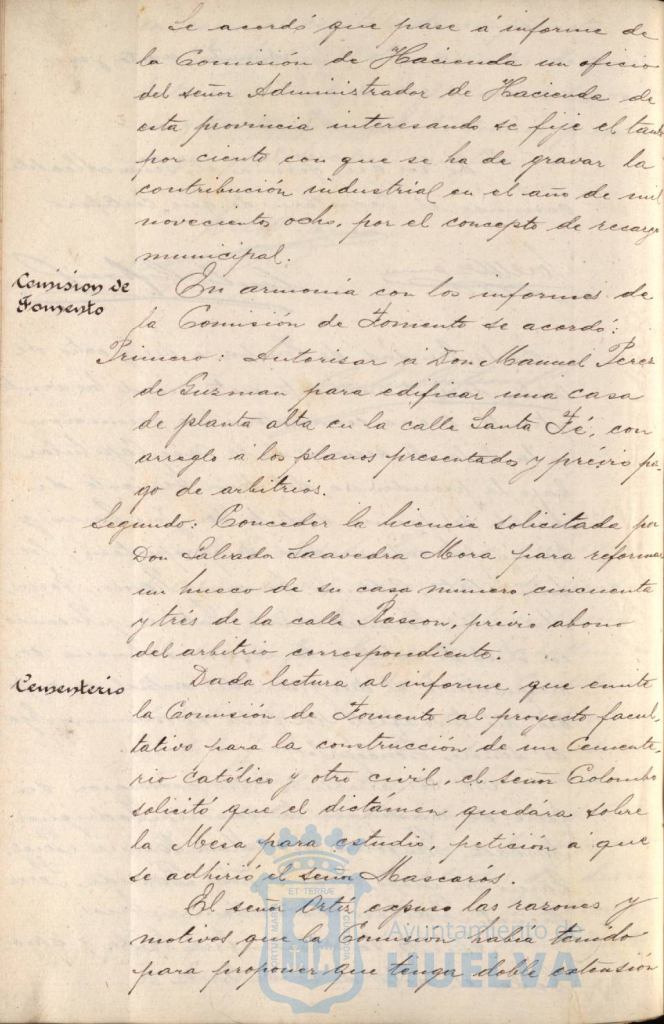 Se acordó que pase á informe de
la Comisión de Hacienda un oficio
del señor Administrador de Hacienda de
esta provincia interesando se fije el tanto
por ciento con que se ha de gravar la
contribución industrial en el año de mil
novecientos ocho, por el concepto de recargo
municipal.
Comision de
Fomento
En armonía con los informes de
la Comisión de Fomento se acordó:
Primero: Autorisar á Don Manuel Perez
de Guzman para edificar una casa
de planta alta en la calle Santa Fé, con
arreglo á los planos presentados y prévio pa-
go de arbitrios.
Segundo: Conceder la licencia solicitada por
Don Salvador Saavedra Mora para reformar
un hueco de su casa número cincuenta
y trés de la calle Rascon, prévio abono
del arbitrio correspondiente.
Cementerio
Dada lectura al informe que emite
la Comisión de Fomento al proyecto facul-
tativo para la construcción de un Cemente-
rio católico y otro civil, el señor Colombo
solicitó que el dictámen quedára sobre
la Mesa para estudio, petición á que
se adhirió el señor Mascarós.
El señor Ortiz expuso las razones y
motivos que la Comision había tenido
para proponer que tenga doble extensión
Ayuntamiento de
HUELVA